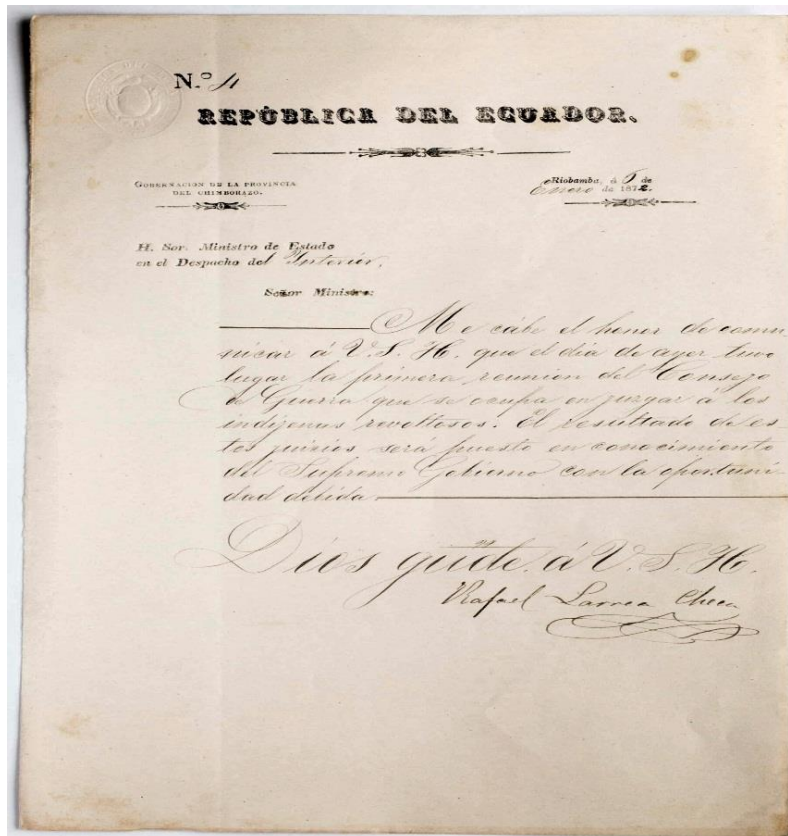 N.º 4
REPÚBLICA DEL ECUADOR.
GOBERNACION DE LA PROVINCIA
DEL CHIMBORAZO.
Riobamba, á 5 de
Enero de 1872.
H. Sor. Ministro de Estado
en el Despacho del Interior.
Señor Ministro:
Me cábe el honor de comu-
nicar á V. S. H. que el dia de ayer tuvo
lugar la primera reunion del Consejo
de Guerra que se ocupa en juzgar á los
indíjenas revoltosos. El resultado de es-
tos juicios será puesto en conocimiento
del Supremo Gobierno con la oportuni-
dad debida
Dios gũde. á V. S. H.
Rafael Larrea Checa